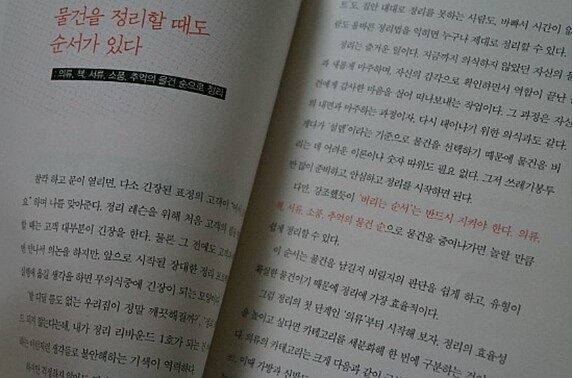 물건을 정리할 때도
순서가 있다
: 의류, 책, 서류, 소품, 추억의 물건 순으로 정리
찰칵 하고 문이 열리면, 다소 긴장된 표정의 고객이
요" 하며 나를 맞아준다. 정리 레슨을 위해 처음 고객의
할 때는 고객 대부분이 긴장을 한다. 물론 그 전에도 고객과
번 만나서 의논을 하지만, 앞으로 시작될 장대한 정리
옮길 생각을 하면 무의식중에 긴장이 되는
디딜 틈도 없는 우리집이 정말 깨끗해질까?'
드 되지 않는다는데, 내가 정리 리바운드 1호가 되는
생각들로 불안해하는 기색이 역력하다.
대로 정리를 못하는 사람도, 바빠서 시간이
람도 올바른 정리법을 익히면 누구나 제대로 정리할 수 있다.
정리는 즐거운 일이다. 지금까지 의식하지 않았던 자신의
과 새롭게 마주하며, 자신의 감각으로 확인하면서 역할이 끝난
건에게 감사한 마음을 실어 떠나보내는 작업이다. 그 과정은
의 내면과 마주하는 과정이자, 다시 태어나기 위한 의식과도 같다.
게다가 '설렘'이라는 기준으로 물건을 선택하기 때문에 물건을 버
리는 데 어려운 이론이나 숫자 따위도 필요 없다. 그저 쓰레기봉투
만 많이 준비하고, 안심하고 정리를 시작하면 된다.
다만, 강조했듯이 '버리는 순서'는 반드시 지켜야 한다. 의류,
책, 서류, 소품, 추억의 물건 순으로 물건을 줄여나가면 놀랄 만큼
쉽게 정리할 수 있다.
이 순서는 물건을 남길지 버릴지의 판단을 쉽게 하고, 유형이
확실한 물건이기 때문에 정리에 가장 효율적이다.
그럼 정리의 첫 단계인 '의류'부터 시작해 보자. 정리의 효율성
을 높이고 싶다면 카테고리를 세분화해 한 번에 구분하는 것이
다. 의류의 카테고리는 크게 다음과 같이
이때 가방과